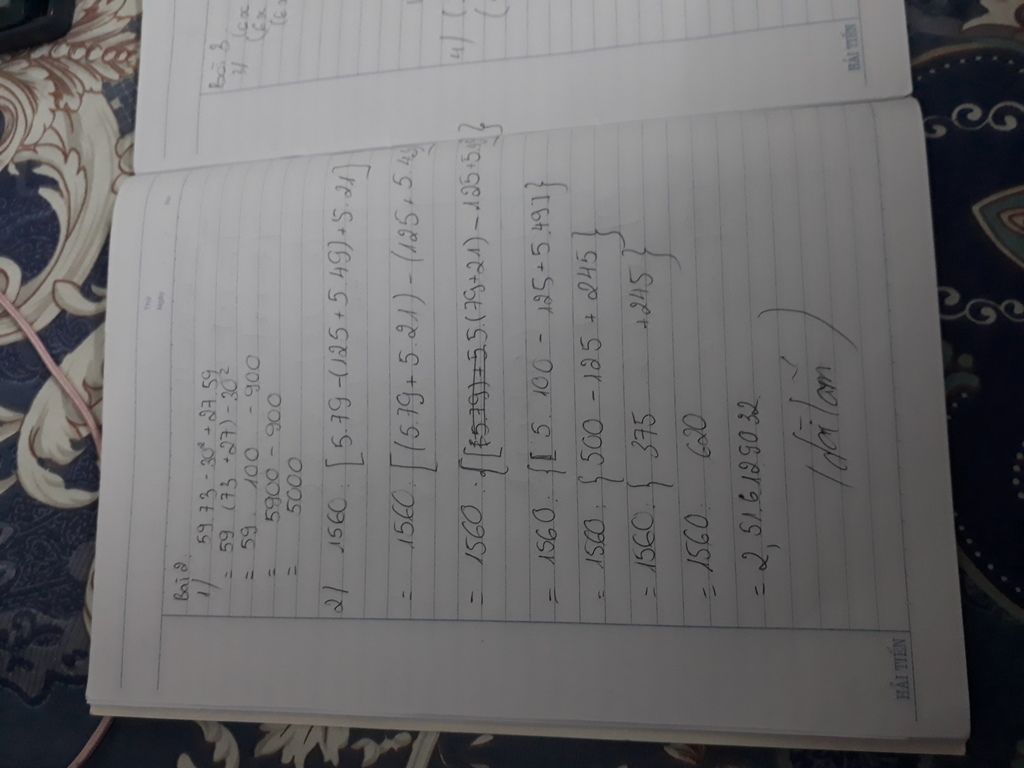 Bài 2
1/ 59.73 - 30² + 27.59
= 59 (73 + 27) - 30²
= 59 . 100 - 900
= 5900 - 900
= 5000
2/ 1560 : [5.79 - (125 + 5.49) + 5.21]
= 1560 : [(5.79 + 5.21) - (125 + 5.49
= 1560 : {[5.(79+21) - 125+5.49]}
= 1560 : {[5 . 100 - 125 + 5.49]}
= 1560 : {500 - 125 + 245}
= 1560 : {375 + 245}
= 1560 : 620
= 2,51612902
(dài lắm)
Thứ
Ngày
No
HẢI TIẾN
Bài 3
1/ (6x
(6x
(6x
4/ (
(
HẢI TIẾN